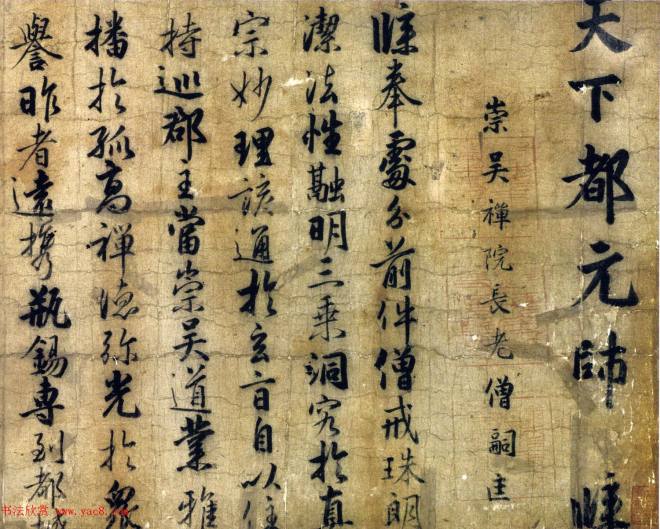 天下都元帥 牒
崇吴禪院長老僧嗣匡
牒奉處分前件僧戒珠朗
潔法性融明三乗洞究於真
宗妙理該通於玄旨自以住
持巡郡主當崇吴道業雅
播於孤高禪德弥光於衆
譽昨者遠携瓶錫專到都城
书法欣赏 www.yac8.com